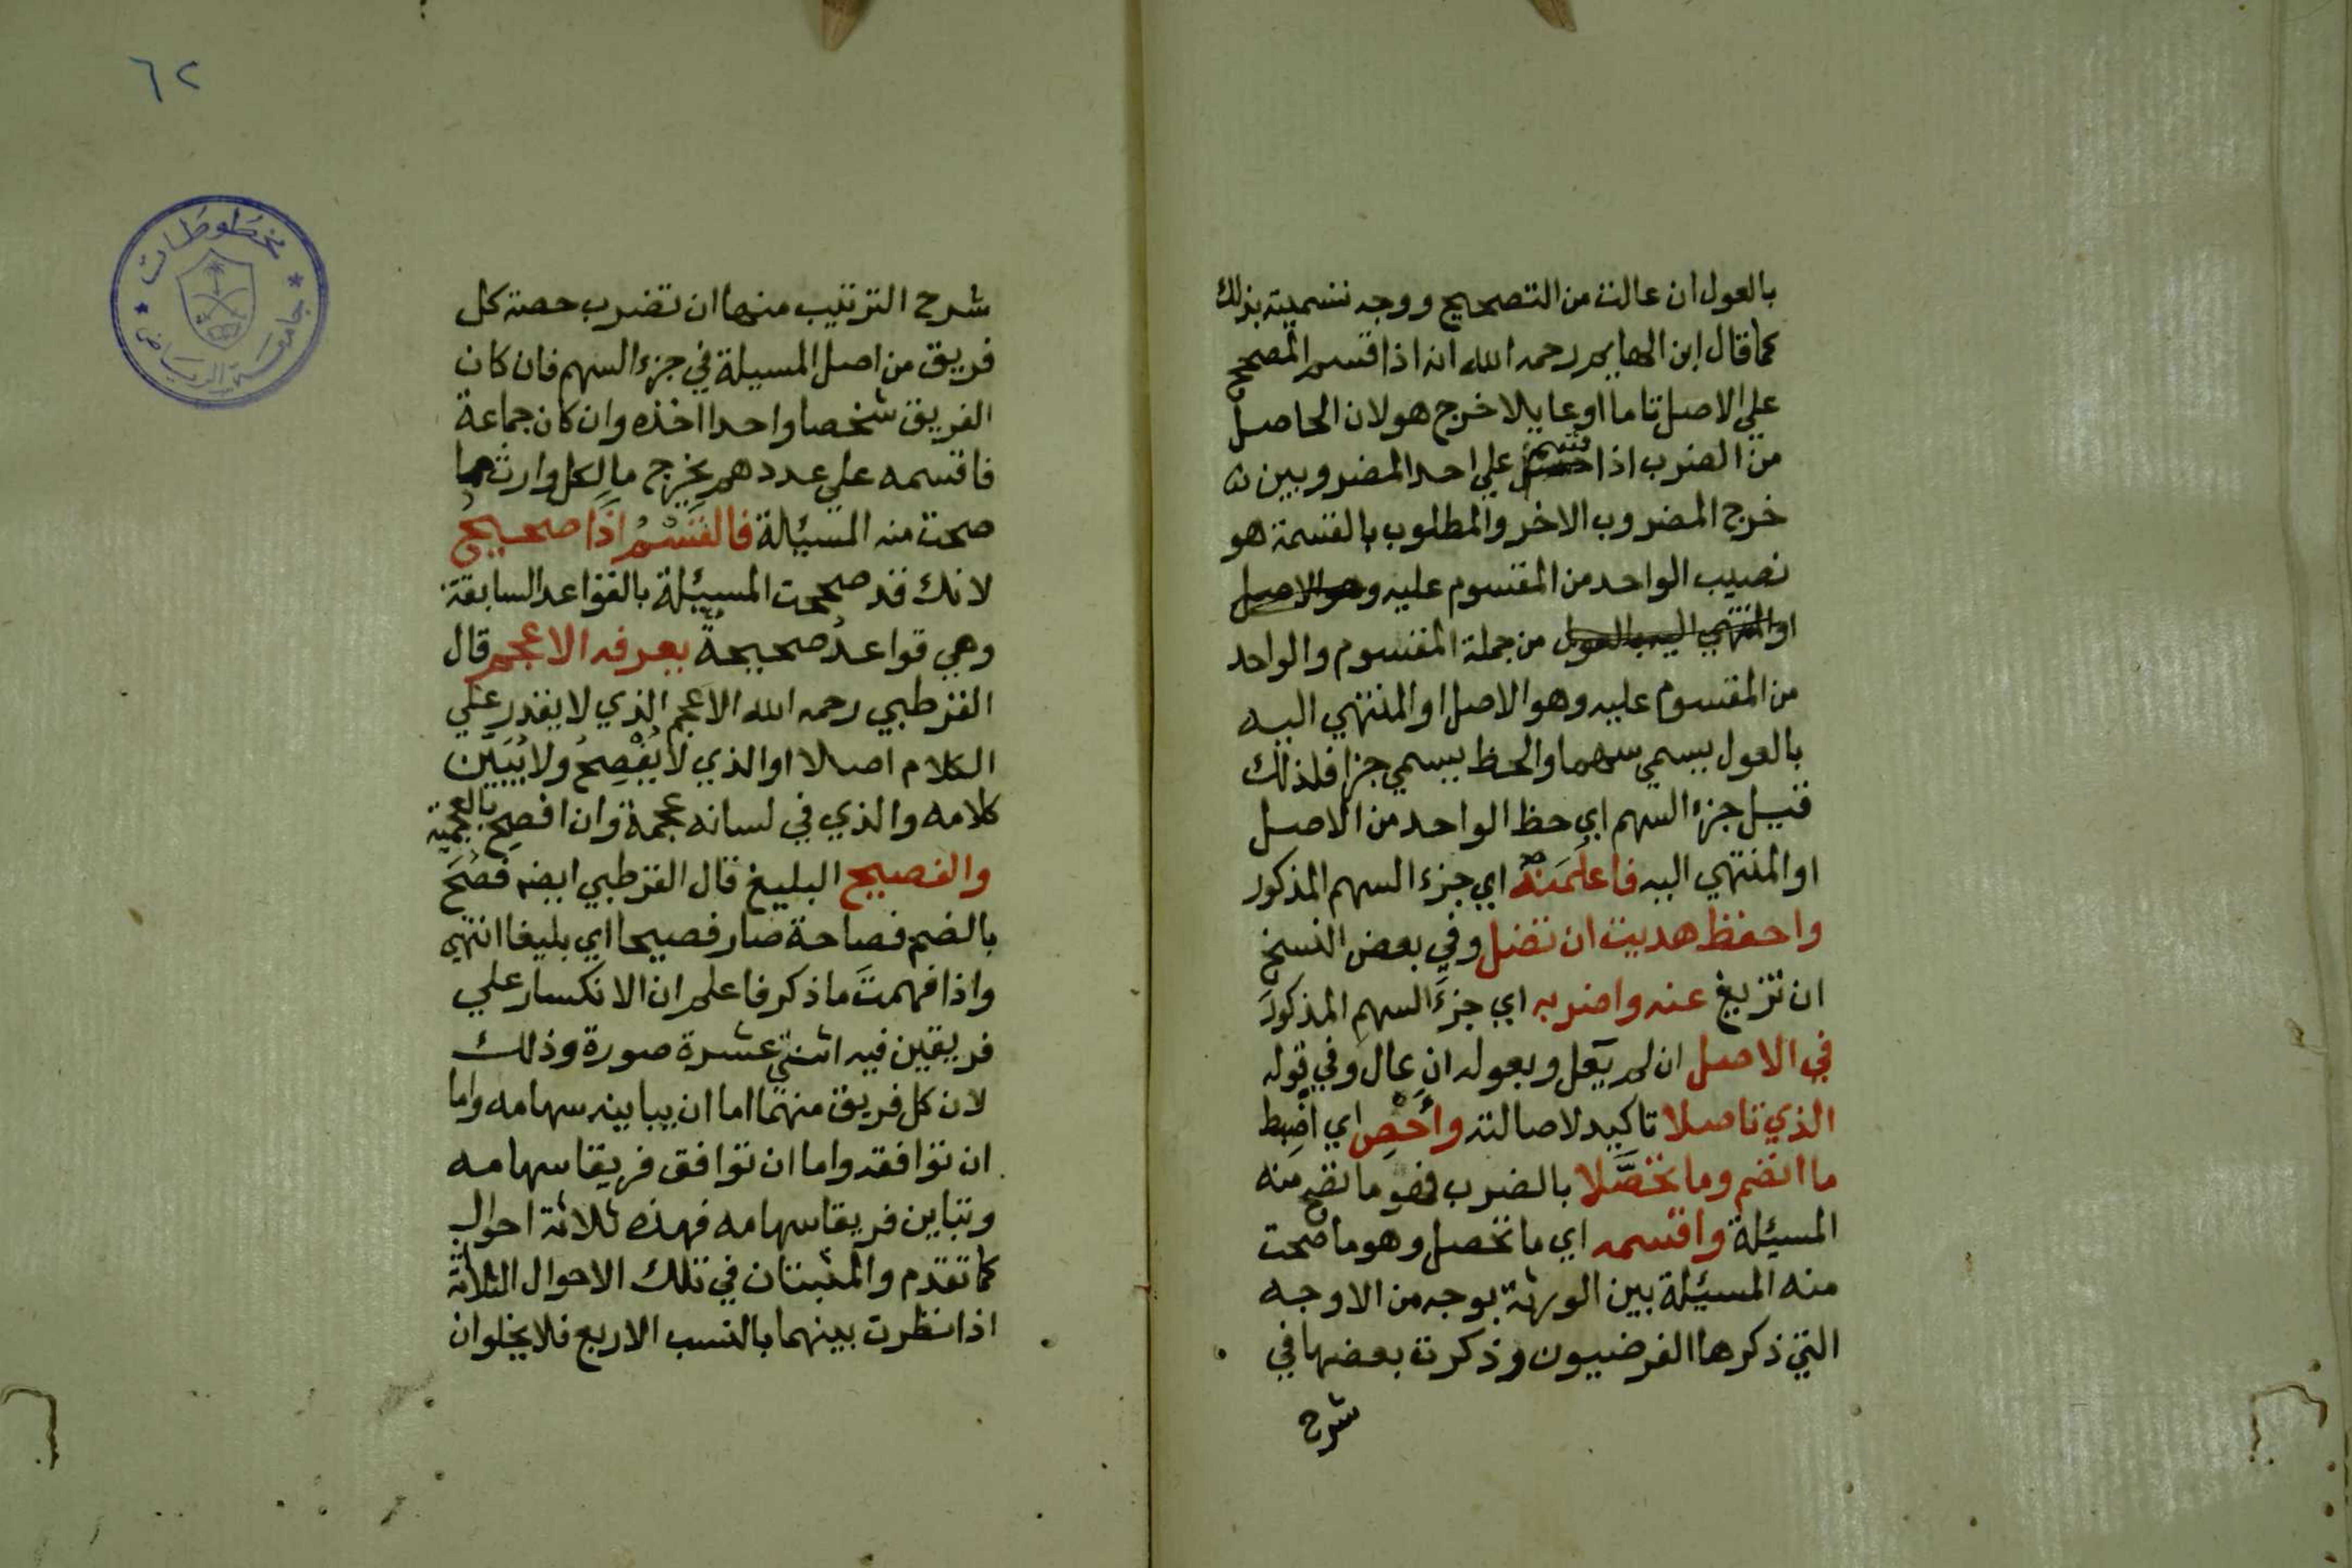 بالعول ان عالت من التصحيح ووجه تسميته بذلك
كما قال ابن الهايم رحمه الله انه اذا قسم المصحح
علي الاصل تاما او عايلا خرج هو لان الحاصل
من الضرب اذا قسم علي احد المضروبين
خرج المضروب الاخر والمطلوب بالقسمة هو
نصيب الواحد من المقسوم عليه وهو الاصل
او المنتهي اليه بالعول من جملة المقسوم والواحد
من المقسوم عليه وهو الاصل او المنتهي اليه
بالعول يسمي سهما والحظ يسمي جزا فلذلك
قيل جزء السهم اي حظ الواحد من الاصل
او المنتهي اليه فاعلمنه اي جزء السهم المذكور
واحفظ هديت ان تضل وفي بعض النسخ
ان تزيغ عنه واضربه اي جزءَ السهمِ المذكورَ
في الاصل ان لم يَعُل وبعوله ان عال وفي قوله
الذي تاصلا تاكيد لاصالته وأَحْصِ اي اضبط
ما انضم وما تحصَّلا بالضرب فهو ما تصح منه
المسئلة واقسمه اي ما تحصل وهو ما صحت
منه المسئلة بين الورثة بوجه من الاوجه
التي ذكرها الفرضيون وذكرت بعضها في
شرح
٦٢
مخطوطات
جامعة الرياض
شرح الترتيب منها ان تضرب حصة كل
فريق من اصل المسيلة في جزء السهم فان كان
الفريق شخصا واحدا اخذه وان كان جماعة
فاقسمه علي عددهم يخرج ما لكل وارث مما
صحت منه المسئلة فالقَسْمُ اذًا صحيحُ
لانك قد صححت المسئلة بالقواعد السابقة
وهي قواعدُ صحيحةٌ يعرفه الاعجم قال
القرطبي رحمه الله الاعجم الذي لا يقدر علي
الكلام اصلا او الذي لا يُفْصِحُ ولا يُبَيِّن
كلامه والذي في لسانه عجمة وان افصح بالعجمية
والفصيح البليغ قال القرطبي ايضا فصُحَ
بالضم فصاحة صار فصيحا اي بليغا انتهي
واذا فهمتَ ما ذكر فاعلم ان الانكسار علي
فريقين فيه اثنتي عشرة صورة وذلك
لان كل فريق منهما اما ان يباينه سهامه واما
ان توافقه واما ان توافق فريقا سهامه
وتباين فريقا سهامه فهذه ثلاثة احوال
كما تقدم والمثبتان في تلك الاحوال الثلاثة
اذا نظرت بينهما بالنسب الاربع فلا يخلوان